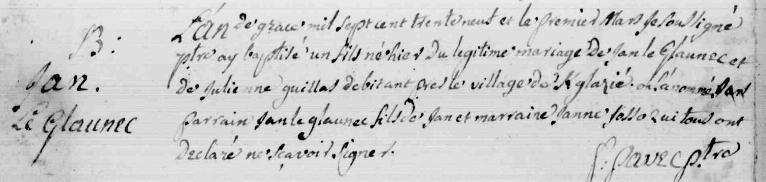 B:
Jan.
Le Glaunec
L'an de grace mil sept cent trente neuf et le premier Mars Je sousigné
ptre ay baptisé un fils né hier du legitime mariage de Jan le Glaunec et
de Julienne guillas debitantes le village de K glazié on l'a nommé Jan
parrain Jan le glaunec fils de Jan et marraine Janne Jasso qui tous ont
declaré ne sçavoir signer.
pavec ptre